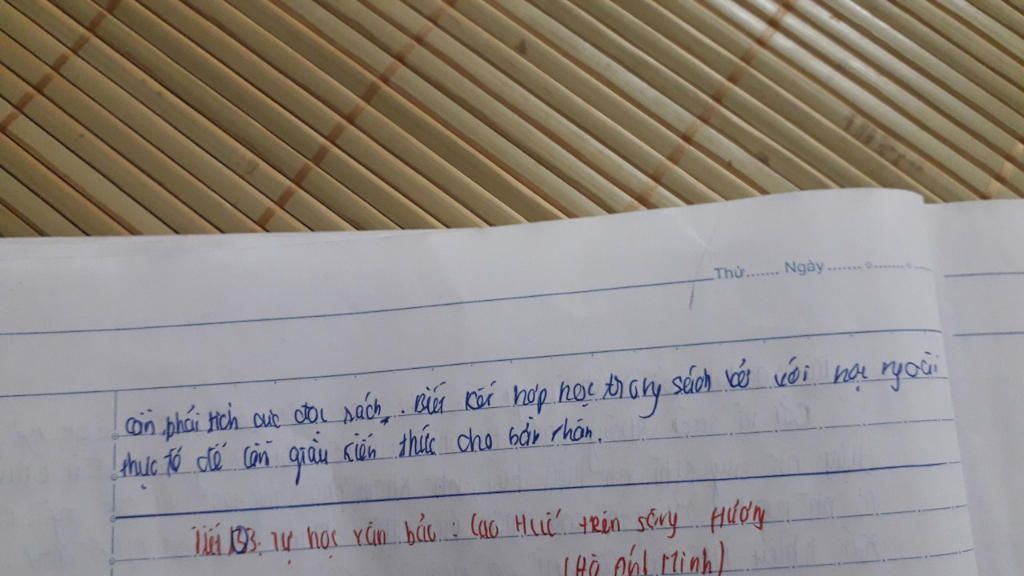 Thứ....... Ngày.......
cần phải tích cực đọc sách. Biết kết hợp học trong sách vở với học ngoài
thực tế để làm giàu kiến thức cho bản thân.
Tiết 103. Tự học văn bản: Ca Huế trên sông Hương
(Hà Ánh Minh)